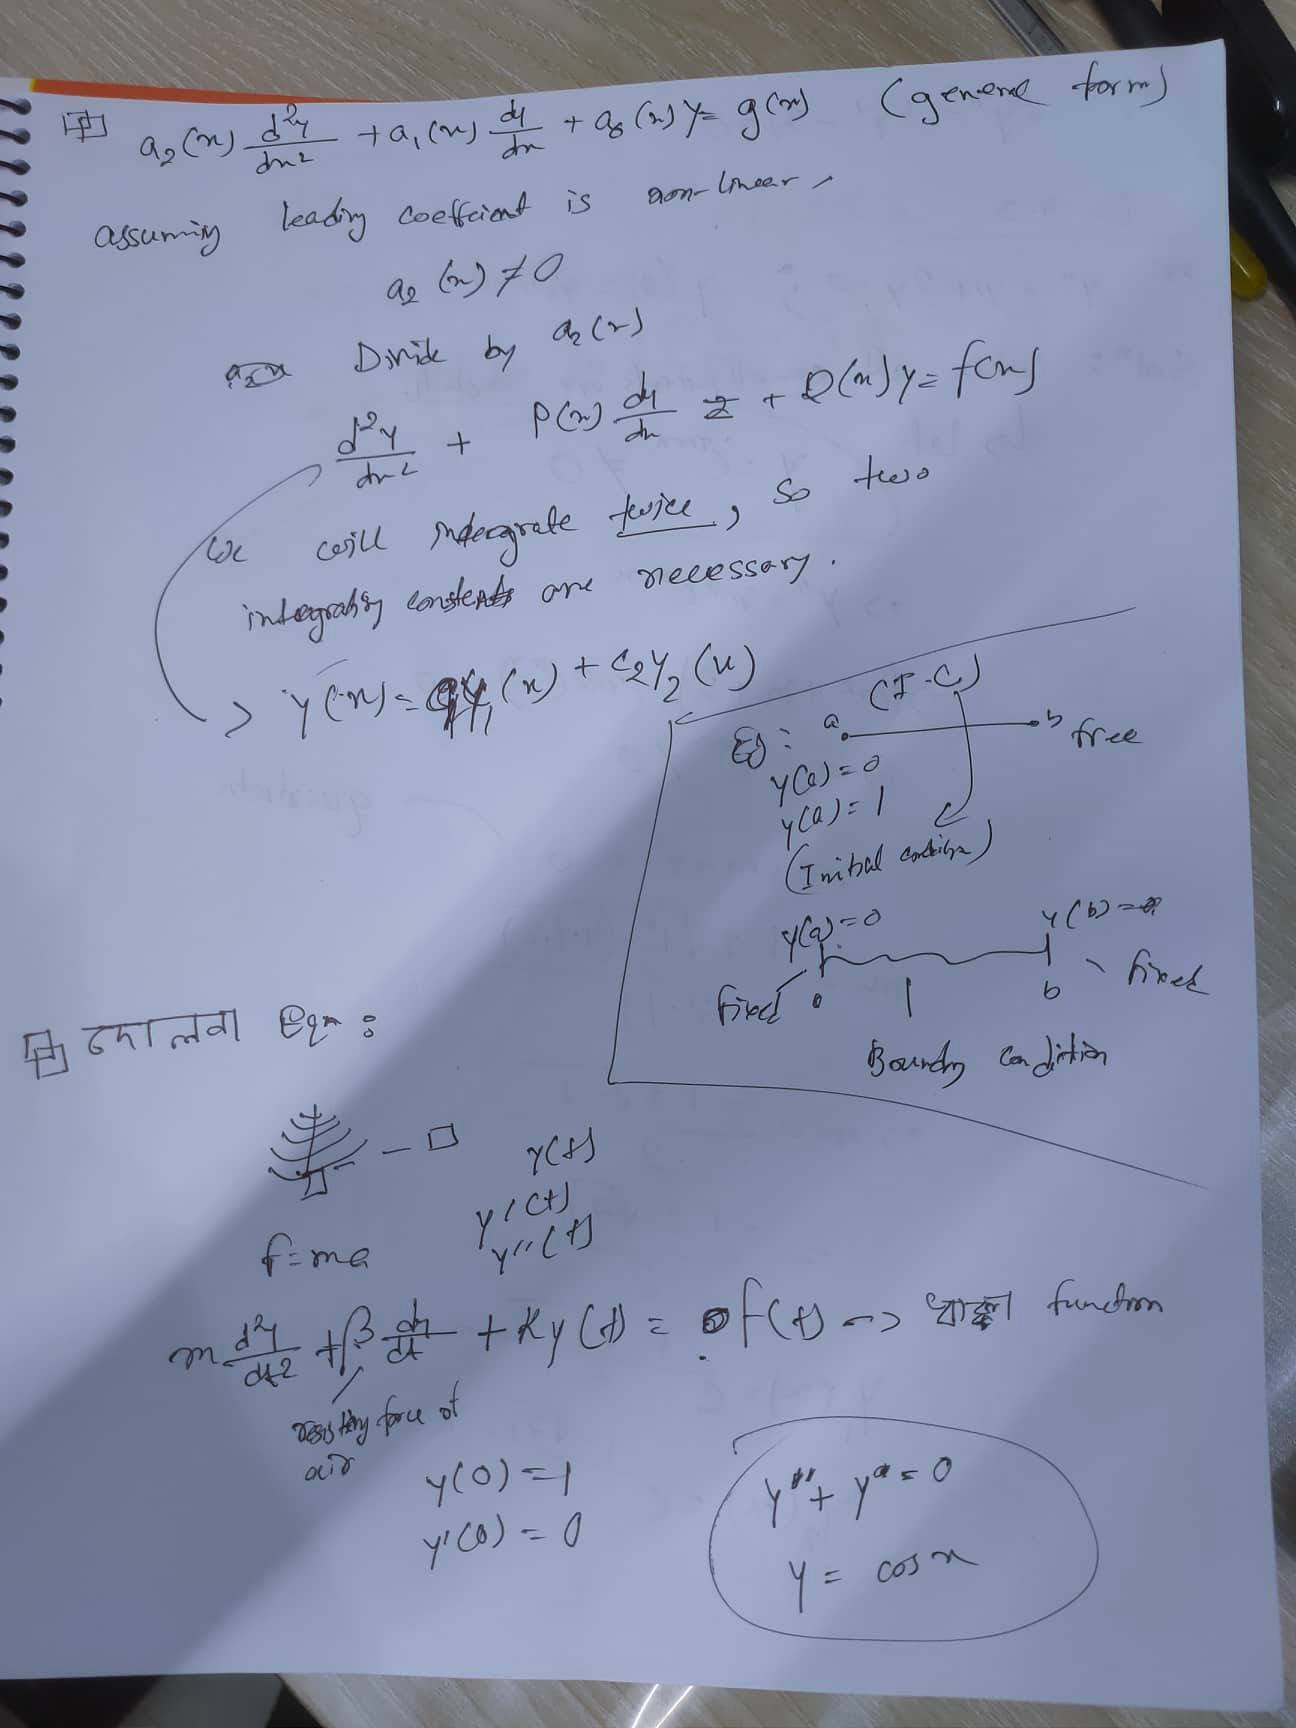 a₂(x) d²y/dx² + a₁(x) dy/dx + a₀(x) y = g(x) (general form)
assuming leading coefficient is non-linear,
a₂(x) ≠ 0
Divide by a₂(x)
d²y/dx² + P(x) dy/dx + Q(x) y = f(x)
We will integrate twice, so two
integrating constants are necessary.
y(x) = c₁y₁(x) + c₂y₂(x)
(I.C)
Eg: a b free
y(a) = 0
y(a) = 1
(Initial condition)
y(a) = 0 y(b) =
fixed b fixed
Boundry condition
দোলনা Eqn:
y(t)
y'(t)
y''(t)
f = ma
m d²y/dt² + β dy/dt + Ky(t) = f(t) function
resisting force of
air
y(0) = 1
y'(0) = 0
y = cos x